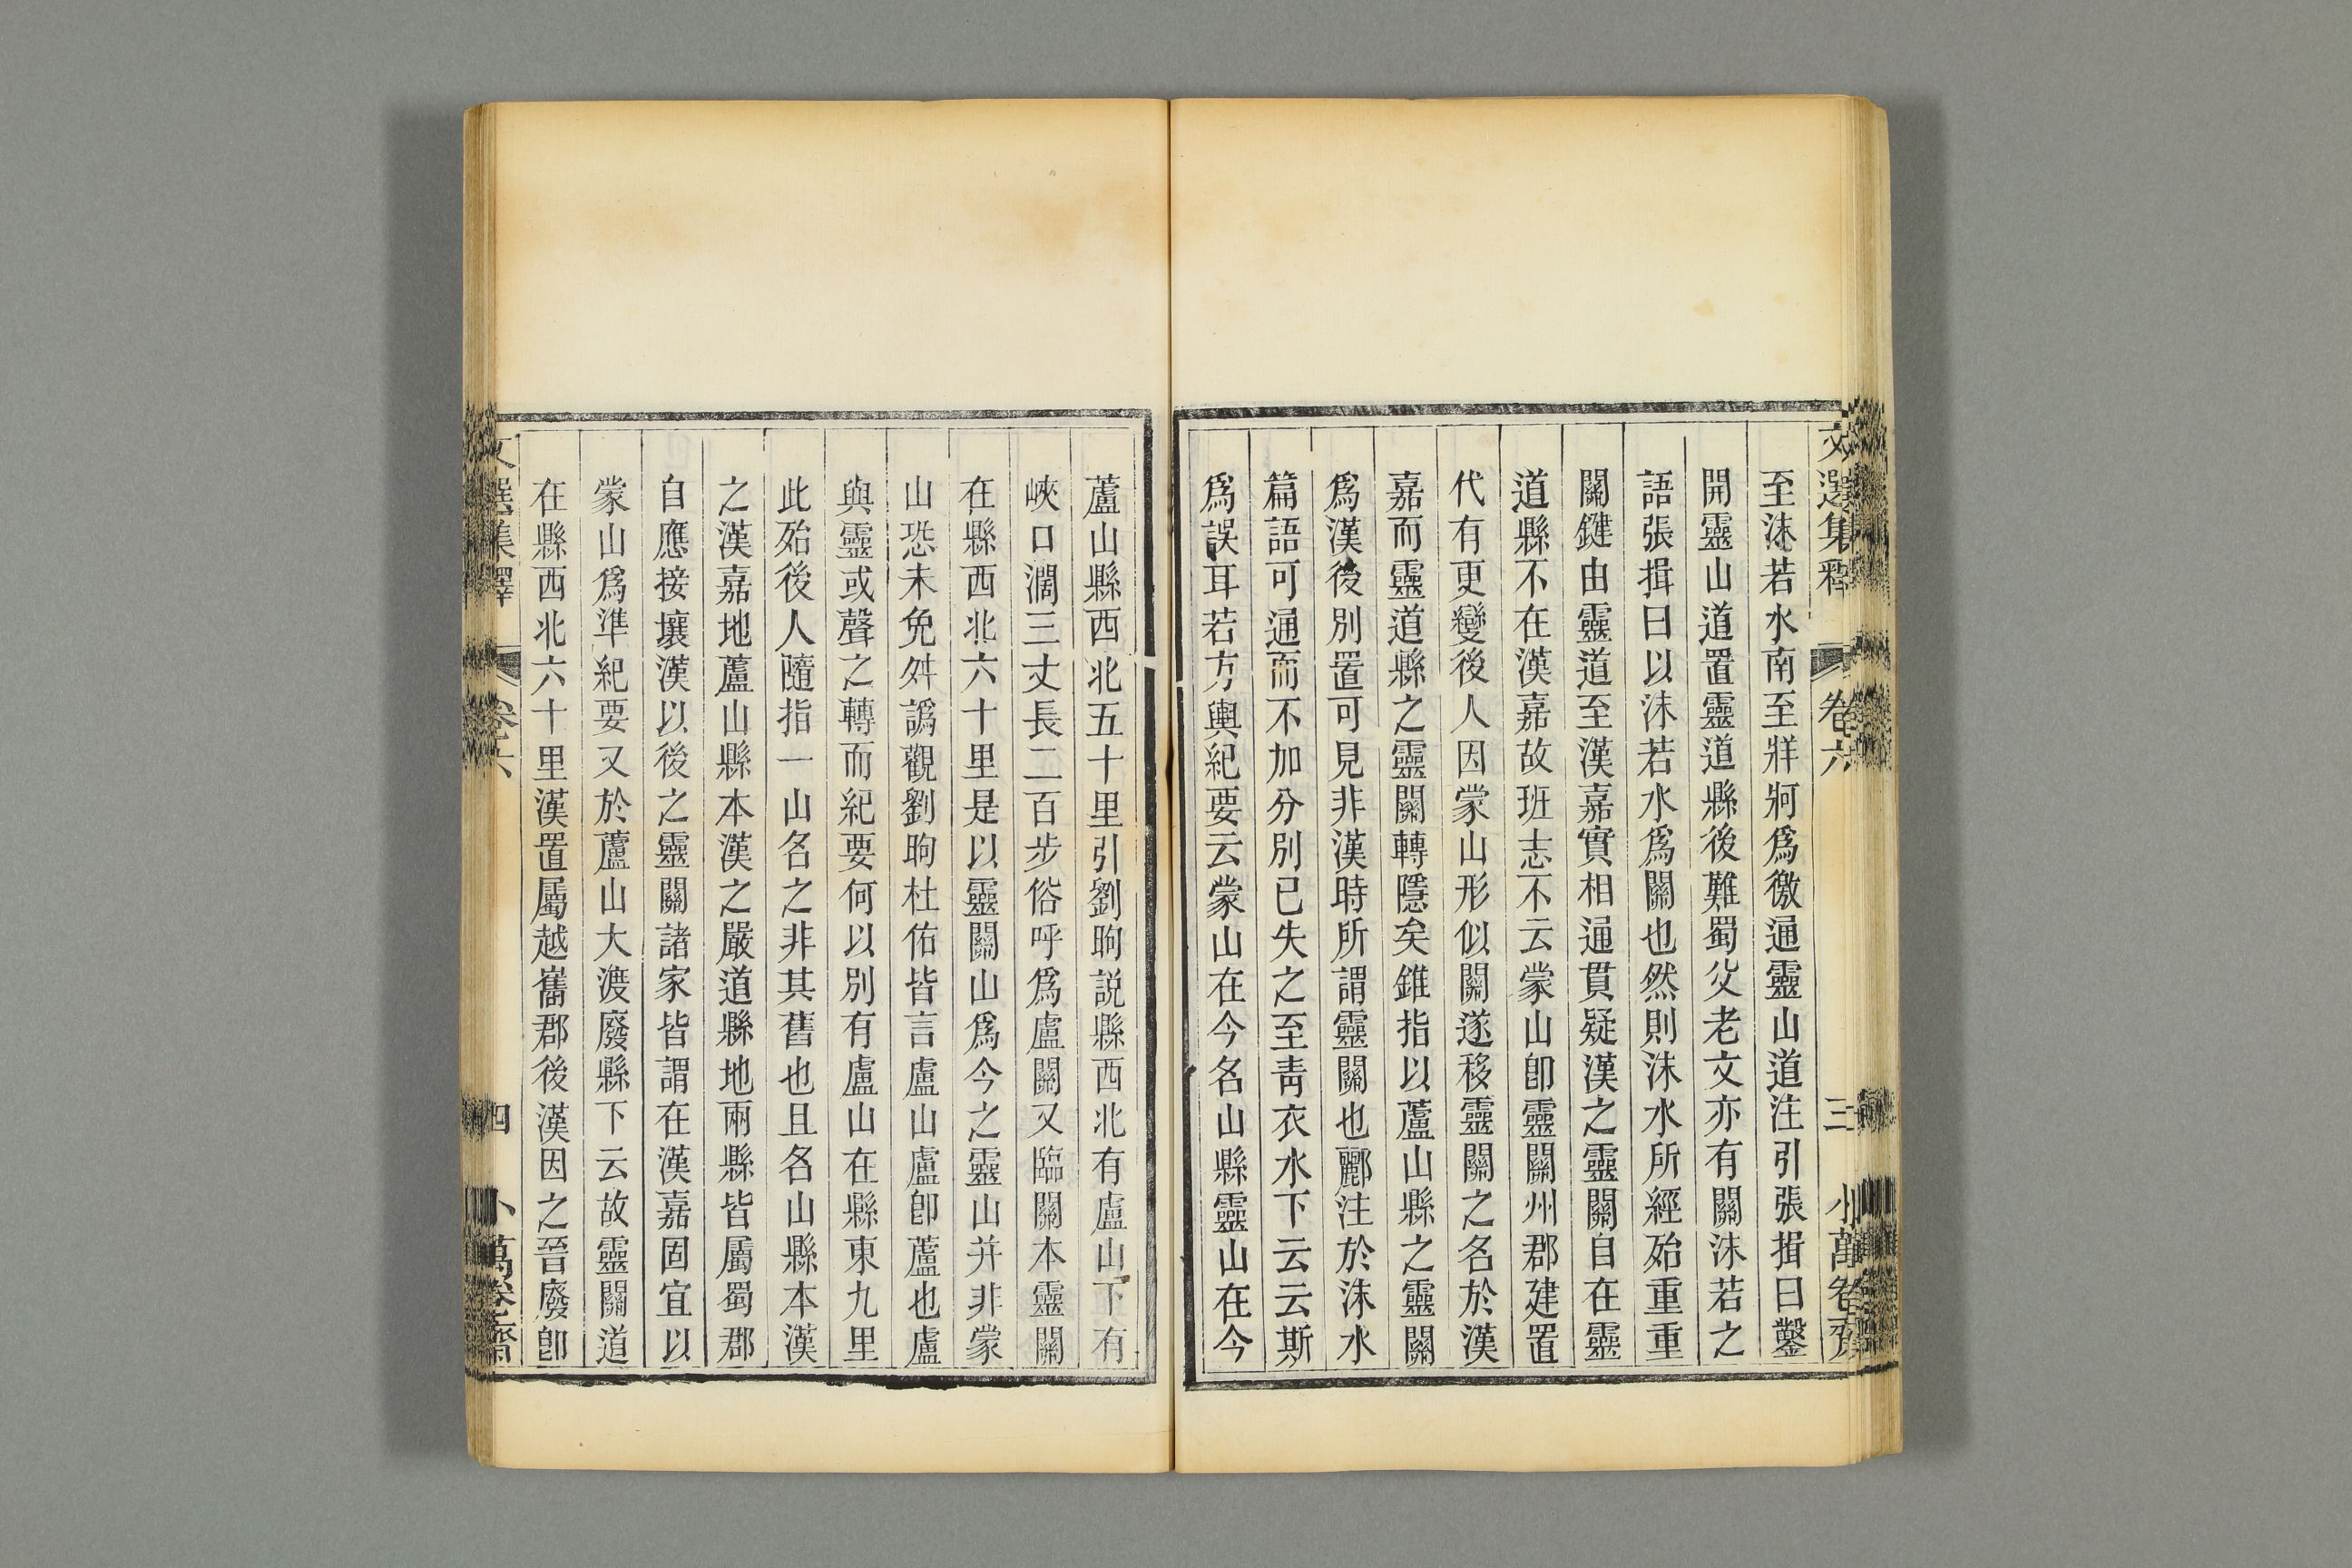 文選集釋 卷六 三 小萬卷齋
至沬若水南至牂牁爲徼通靈山道注引張揖曰鑿
開靈山道置靈道縣後難蜀父老文亦有關沬若之
語張揖曰以沬若水爲關也然則沬水所經殆重重
關鍵由靈道至漢嘉實相通貫疑漢之靈關自在靈
道縣不在漢嘉故班志不云蒙山卽靈關州郡建置
代有更變後人因蒙山形似關遂移靈關之名於漢
嘉而靈道縣之靈關轉隱矣錐指以蘆山縣之靈關
爲漢後別置可見非漢時所謂靈關也酈注於沬水
篇語可通而不加分別已失之至靑衣水下云云斯
爲誤耳若方輿紀要云蒙山在今名山縣靈山在今
蘆山縣西北五十里引劉昫説縣西北有盧山下有
峽口濶三丈長二百步俗呼爲盧關又臨關本靈關
在縣西北六十里是以靈關山爲今之靈山并非蒙
山恐未免舛譌觀劉昫杜佑皆言盧山盧卽蘆也盧
與靈或聲之轉而紀要何以別有盧山在縣東九里
此殆後人隨指一山名之非其舊也且名山縣本漢
之漢嘉地蘆山縣本漢之嚴道縣地兩縣皆屬蜀郡
自應接壤漢以後之靈關諸家皆謂在漢嘉固宜以
蒙山爲準紀要又於蘆山大渡廢縣下云故靈關道
在縣西北六十里漢置屬越巂郡後漢因之晉廢卽
文選集釋 卷六 四 小萬卷齋